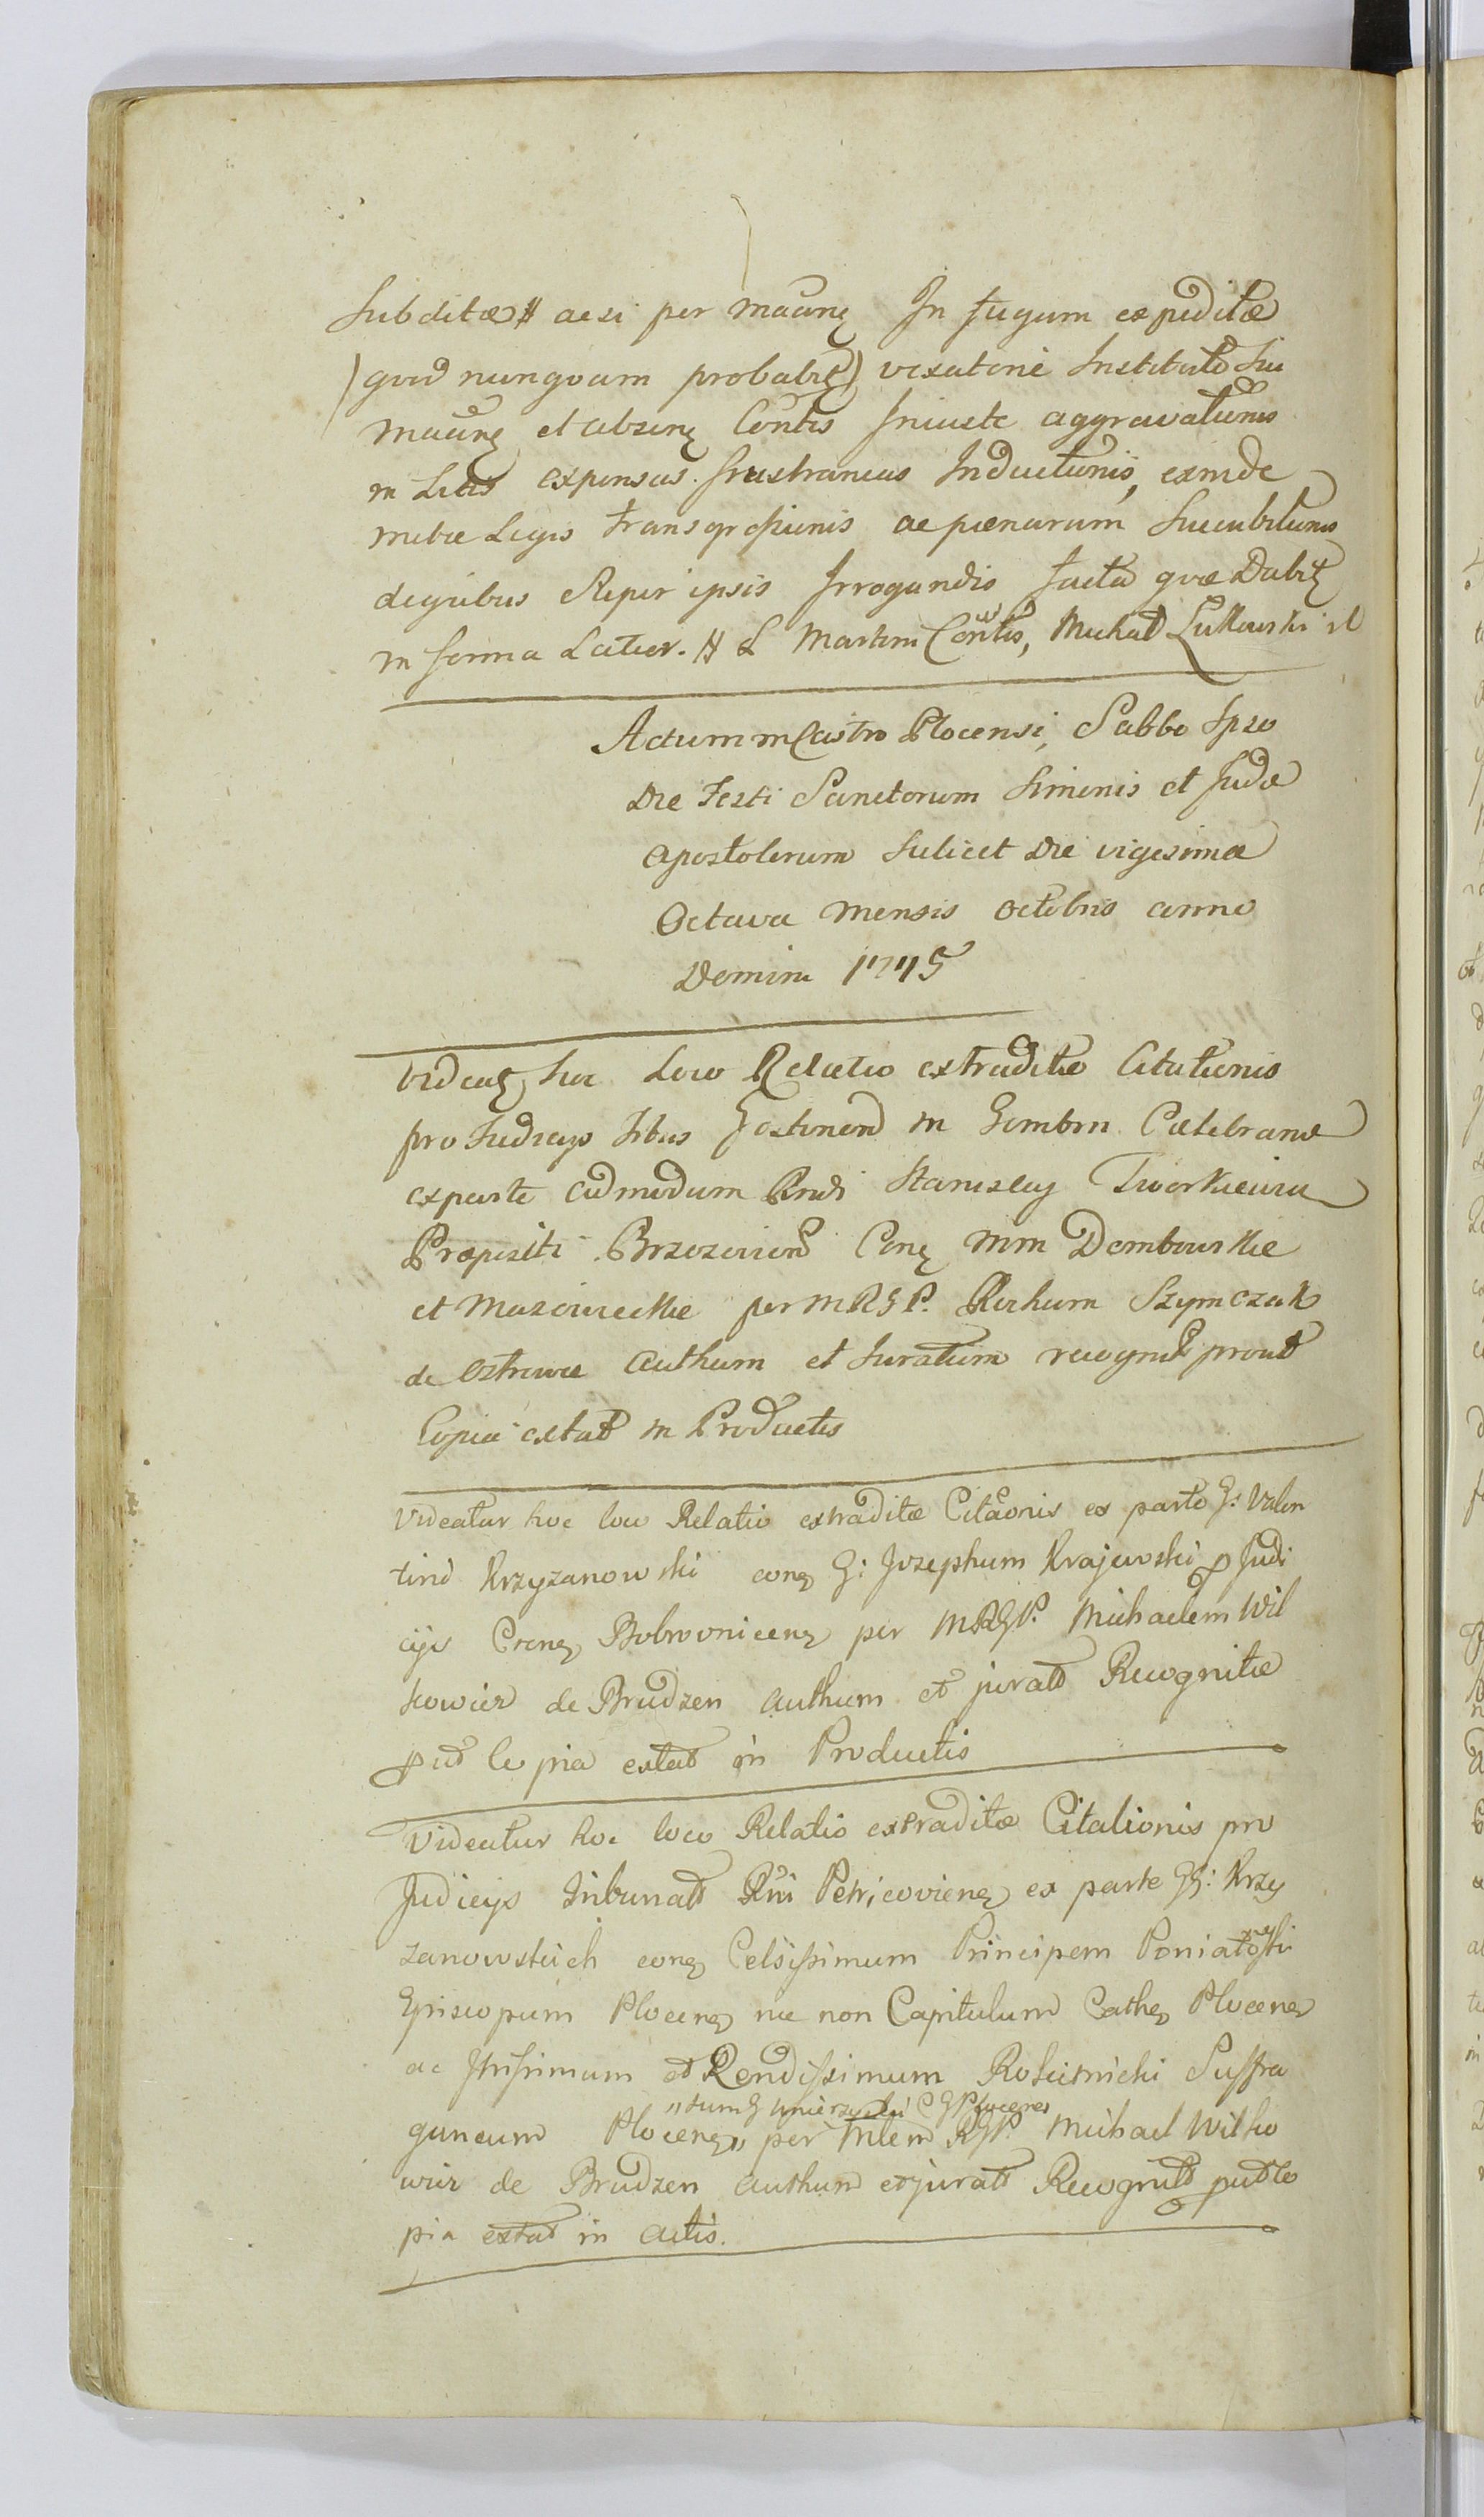 Subditæ # acsi per maãnꝫ In fugam expeditæ
(quod nunquam probabitꝫ) vexatorie Institutio Sui
maãnꝫ et absenꝫ Contis Iniuste aggravationis
in Litis expensas frustraneas Inductionis, exinde
Legis transgressionis ac pœnarum Succubitionis
de quibus Super ipsis Irrogandis facta quæ Dabitꝫ
in forma Latior. # & Martini Contis, Michał Łukowski
Actum in Castro Plocensi, Sabbo Ipso
Die Festi Sanctorum Simonis et Judæ
Apostolorum Scilicet Die vigesima
Octava Mensis Octobris anno
Domini 1775
Videatꝫ hoc Loco Relatio extraditæ Citationis
pro Judicijs Gostinen in Gombin Cælebrand
ex parte admodum Rndi Stanislai Tworkiewicz
Præpositi Brzezovien Conꝫ Mm Dembowskie
et Mazowieckie per MRGP. Rochum Szymczak
de Ostrowce Authum et Juratum recognit prout
Copia extat in Productis
Videatur hoc loco Relatio extraditæ Citãonis ex parte G: Valen
tini Krzyzanowski conꝫ G: Josephum Krajewski p Judi
cijs Crenꝫ Bobrovnicenꝫ per MRGP. Michaelem Wil
kowicz de Brudzen authum et jurat Recognitæ
put Co pia extat in Productis
Videatur hoc loco Relatio extraditæ Citationis pro
Judicijs Tribunalt Rni Petricovienꝫ ex parte GG: Krzy
zanowskich conꝫ Celsissimum Principem Poniatowski
Episcopum Plocenꝫ nec non Capitulum Cathꝫ Plocenꝫ
ac Illrissimum et Rendissimum Rościmicki Suffra
„tum G Umierzyski C G Plocenꝫ
ganeum Plocenꝫ„ per Mlem RGP. Michael Wilko
wicz de Brudzen authum et jurat Recognit put Co
pia extat in actis.